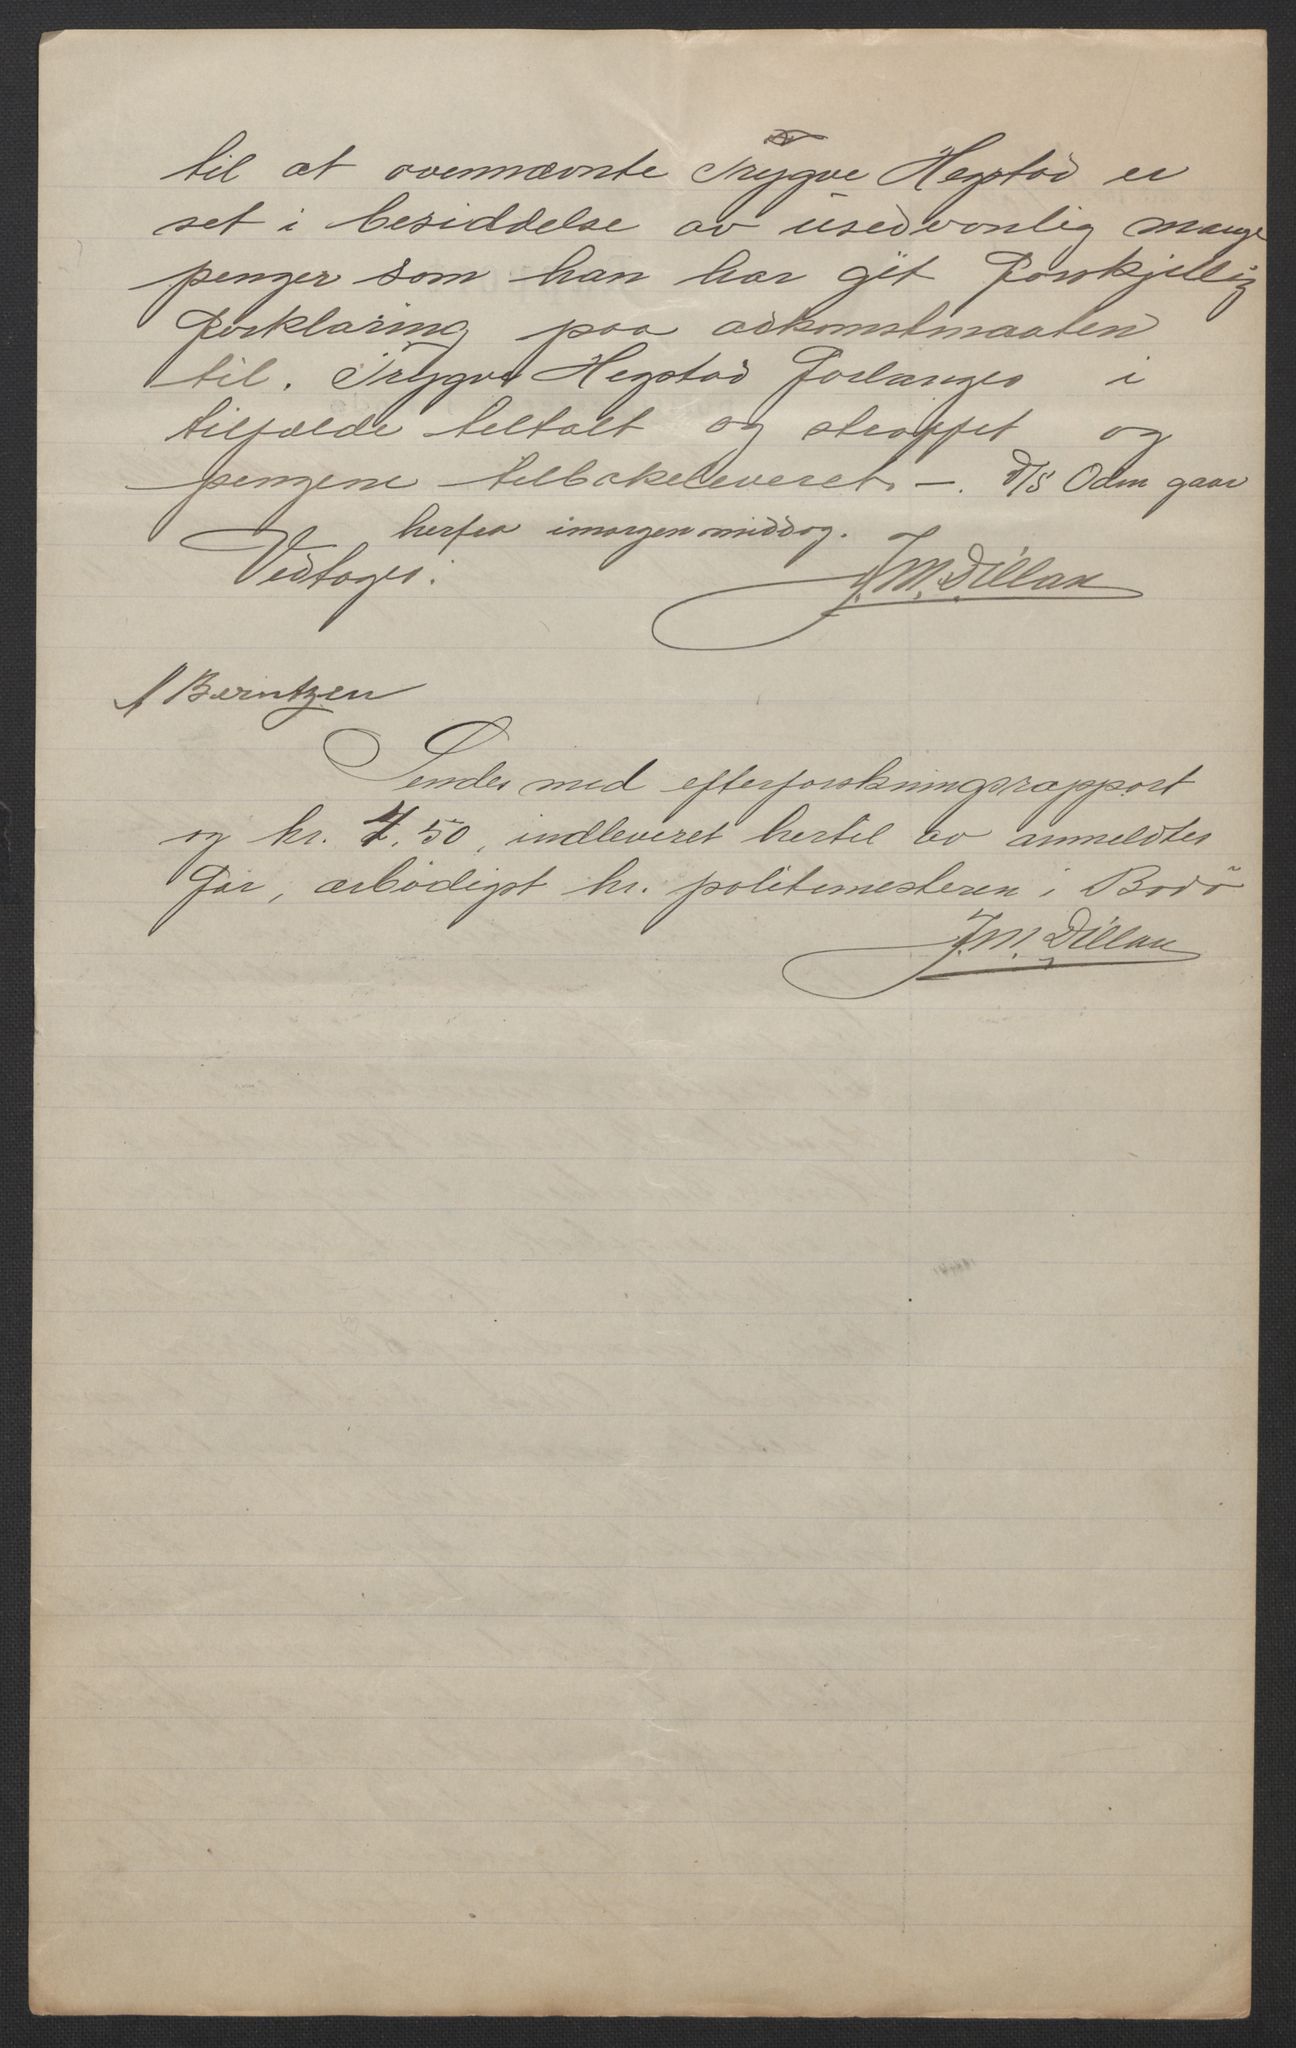 til at ovennævnte Trygve Hegstad er
set i besiddelse av usedvanlig mange
penger som han har git forskjellig
forklaring paa adkomstmaaten
til. Trygve Hegstad forlanges i
tilfælde tiltalt og straffet og
pengene tilbakeleveret. —. D/S Odin gaar
herfra imorgen middag.
Vedtages: J. M. Dillan
A Berntzen
Sendes med efterforskningsrapport
og kr. 7,50, indleveret hertil av anmeldtes
far, ærbödigst hr. politimesteren i Bodö
J. M. Dillan